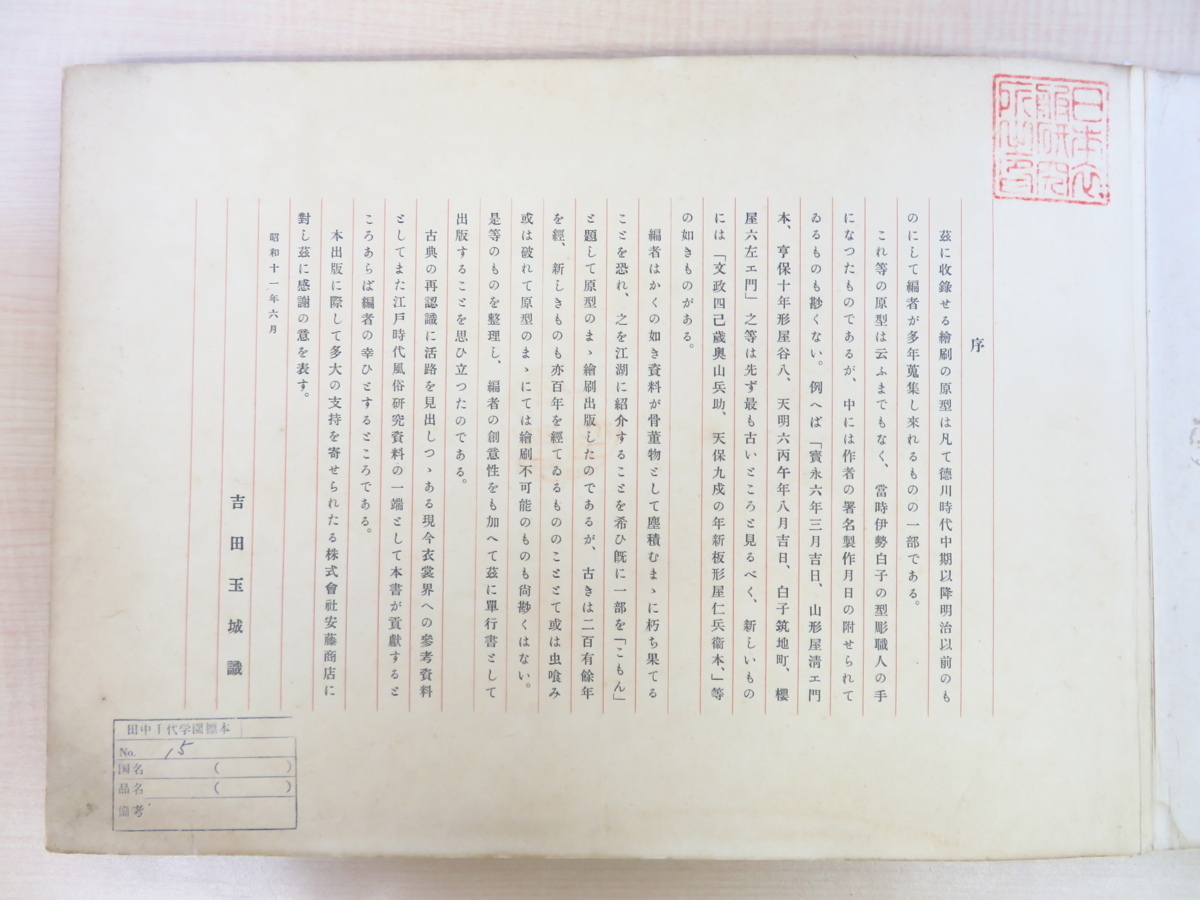 序
茲に收錄せる繪刷の原型は凡て德川時代中期以降明治以前のも
のにして編者が多年蒐集し來れるものの一部である。
これ等の原型は云ふまでもなく、當時伊勢白子の型彫職人の手
になつたものであるが、中には作者の署名製作月日の附せられて
ゐるものも尠くない。例へば「寳永六年三月吉日、山形屋淸エ門
本、亨保十年形屋谷八、天明六丙午年八月吉日、白子筑地町、櫻
屋六左エ門」之等は先ず最も古いところと見るべく、新しいもの
には「文政四己歲奥山兵助、天保九戌の年新板形屋仁兵衞本、」等
の如きものがある。
編者はかくの如き資料が骨董物として塵積むまゝに朽ち果てる
ことを恐れ、之を江湖に紹介することを希ひ旣に一部を「こもん」
と題して原型のまゝ繪刷出版したのであるが、古きは二百有餘年
を經、新しきものも亦百年を經てゐるもののこととて或は虫喰み
或は破れて原型のまゝにては繪刷不可能のものも尙尠くはない。
是等のものを整理し、編者の創意性をも加へて茲に單行書として
出版することを思ひ立つたのである。
古典の再認識に活路を見出しつゝある現今衣裳界への參考資料
としてまた江戸時代風俗硏究資料の一端として本書が貢獻すると
ころあらば編者の幸ひとするところである。
本出版に際して多大の支持を寄せられたる株式會社安藤商店に
對し茲に感謝の意を表す。
昭和十一年六月
吉田玉城識
田中千代学園標本
No. 15
国名 ( )
品名 ( )
備考